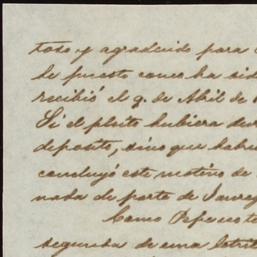 toso y agradecido para
he puesto como ha sid
recibió el 9. de Abril de
Si el pleito hubiera du
deposito, sino que habi
concluyó este motivo de
nada de parte de Jaureg
Como Pepe
segunda de una letr